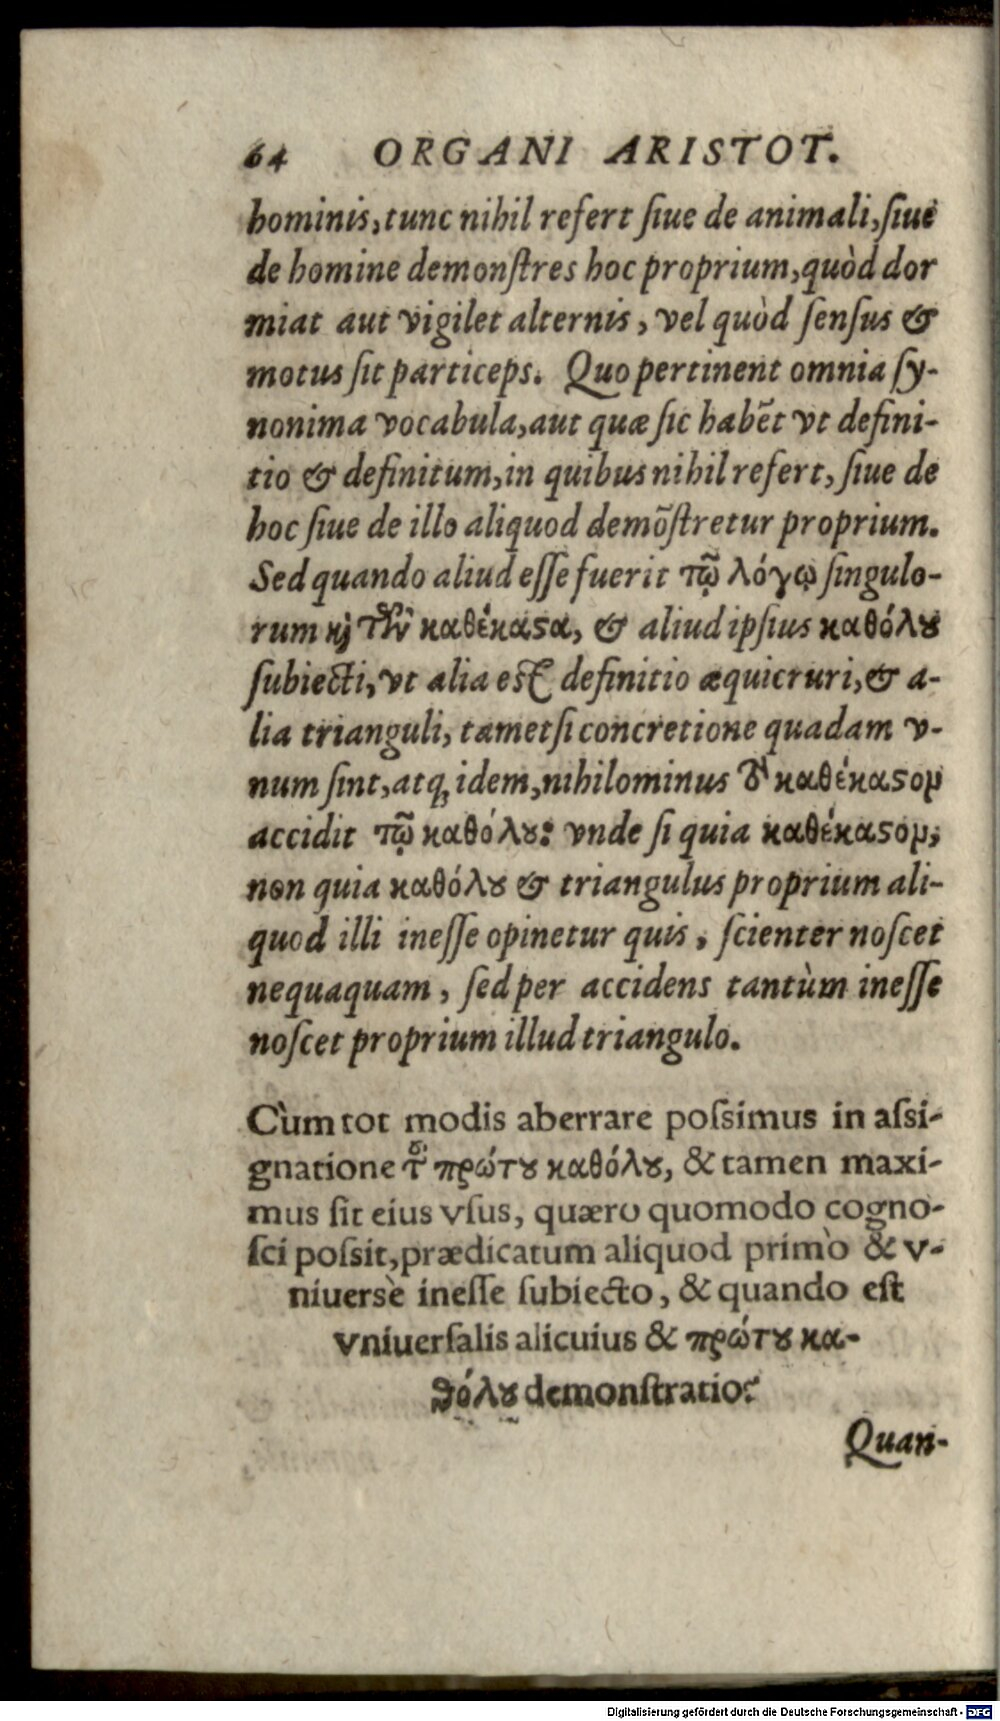 64 ORGANI ARISTOT.
hominis, tunc nihil refert ſiue de animali, ſiue
de homine demonſtres hoc proprium, quòd dor
miat aut vigilet alternis, vel quòd ſenſus &
motus ſit particeps. Quo pertinent omnia ſy-
nonima vocabula, aut quæ ſic habẽt vt defini-
tio & definitum, in quibus nihil refert, ſiue de
hoc ſiue de illo aliquod demõſtretur proprium.
Sed quando aliud eſſe fuerit τῷ λόγῳ ſingulo-
rum ϗ τῶν καθέκαϛα, & aliud ipſius καθόλȣ
ſubiecti, vt alia eſt definitio æquicruri, & a-
lia trianguli, tametſi concretione quadam v-
num ſint, atq; idem, nihilominus τὸ καθέκαϛομ
accidit τῷ καθόλȣ: vnde ſi quia καθέκαϛομ,
non quia καθόλȣ & triangulus proprium ali-
quod illi ineſſe opinetur quis, ſcienter noſcet
nequaquam, ſed per accidens tantùm ineſſe
noſcet proprium illud triangulo.
Cùm tot modis aberrare poſsimus in aſsi-
gnatione τȣ͂ πρώτȣ καθόλȣ, & tamen maxi-
mus ſit eius vſus, quæro quomodo cogno-
ſci poſsit, prædicatum aliquod primò & v-
niuersè ineſſe ſubiecto, & quando eſt
vniuerſalis alicuius & πρώτȣ κα-
θόλȣ demonſtratio?
Quan-
Digitalisierung gefördert durch die Deutsche Forschungsgemeinschaft - DFG